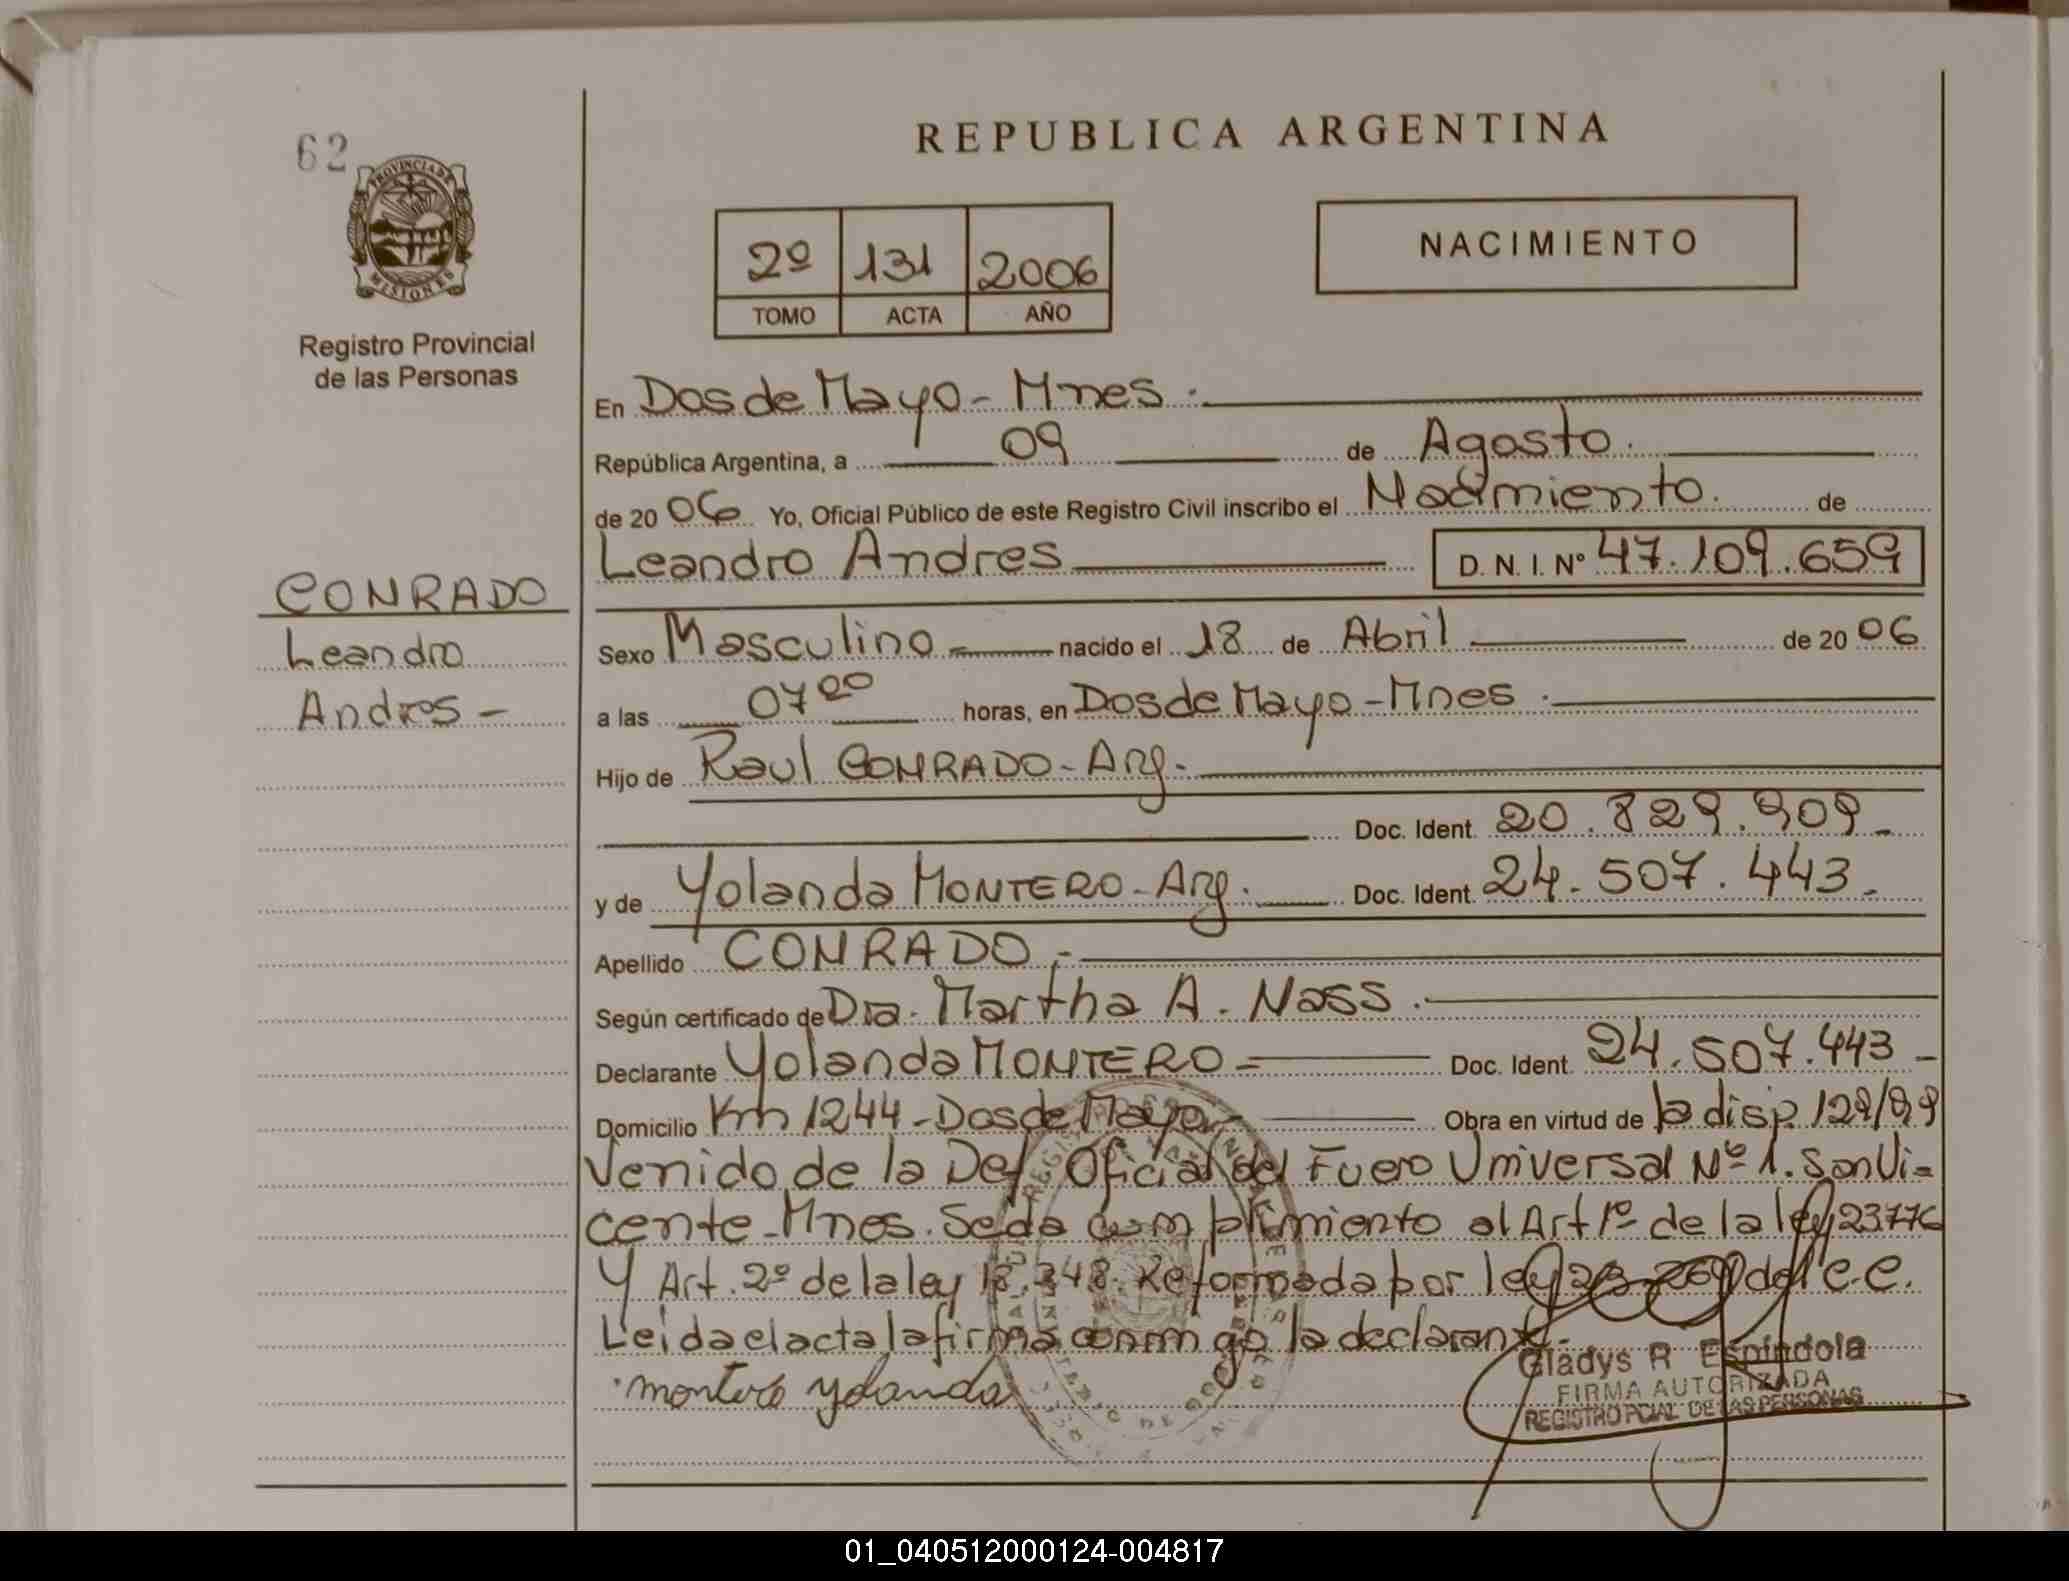 62
PROVINCIA DE
MISIONES
Registro Provincial
de las Personas
CONRADO
Leandro
Andres -
REPUBLICA ARGENTINA
2º 131 2006
TOMO ACTA AÑO
NACIMIENTO
En Dos de Mayo - Mnes.
República Argentina, a 09 de Agosto.
de 2006 Yo, Oficial Público de este Registro Civil inscribo el Nacimiento. de
Leandro Andres D. N. I. Nº 47.109.659
Sexo Masculino nacido el 18 de Abril de 2006
a las 07 00 horas, en Dos de Mayo - Mnes.
Hijo de Raul CONRADO - Arg.
Doc. Ident. 20.829.909 -
y de Yolanda MONTERO - Arg. Doc. Ident. 24.507.443 -
Apellido CONRADO.-
Según certificado de Dra. Martha A. Nass.
Declarante Yolanda MONTERO Doc. Ident. 24.507.443 -
Domicilio Km 1244 - Dos de Mayo Obra en virtud de la disp. 129/99
Venido de la Def. Oficial del Fuero Universal Nº 1. San Vi=
cente - Mnes. Se da cumplimiento al Art 1º de la ley 23776
Y Art. 2º de la ley 18.248. Reformada por ley del C.C.
Leida el acta la firma conmigo la declarante.
montero yolanda
Gladys R Espíndola
FIRMA AUTORIZADA
REGISTRO PCIAL DE LAS PERSONAS
01_040512000124-004817